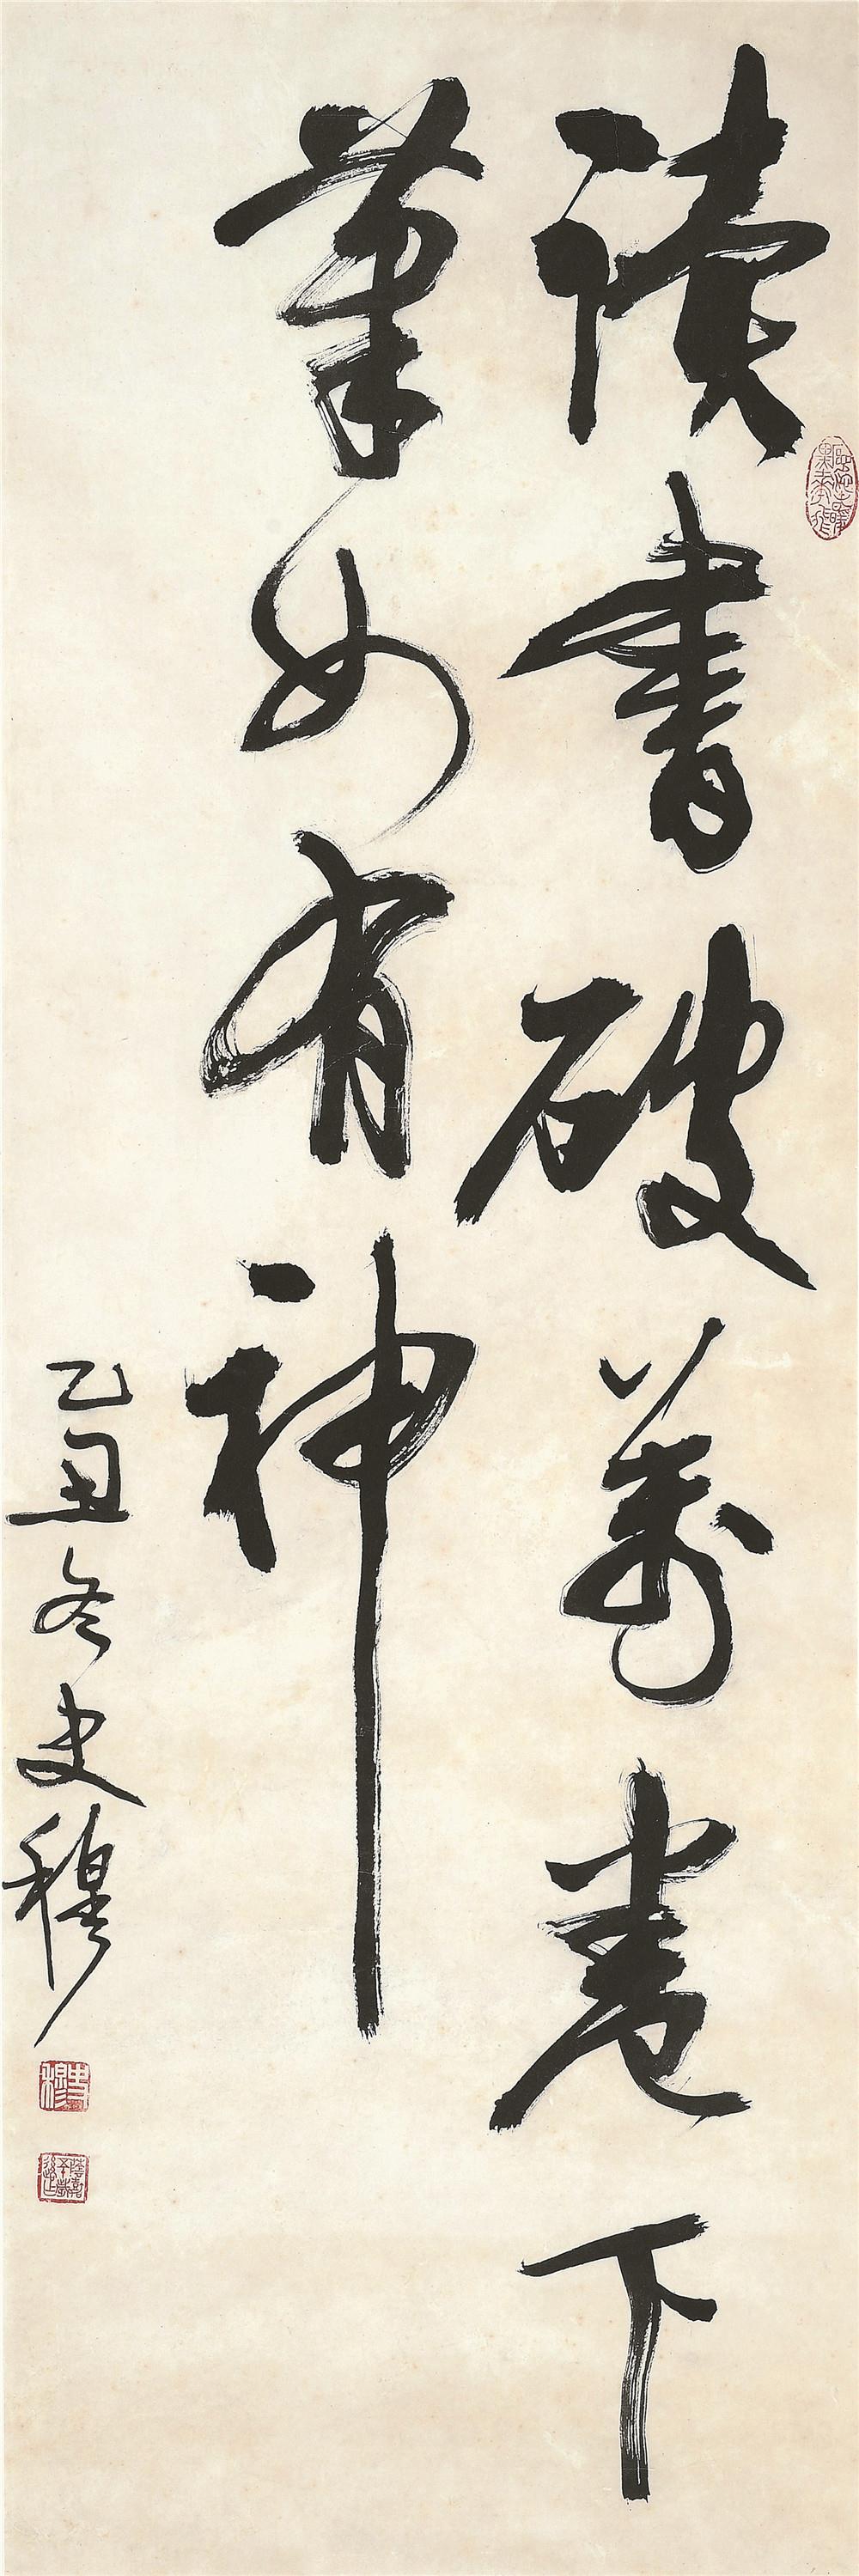 讀書破萬卷下
筆如有神
乙丑冬史穆
史穆